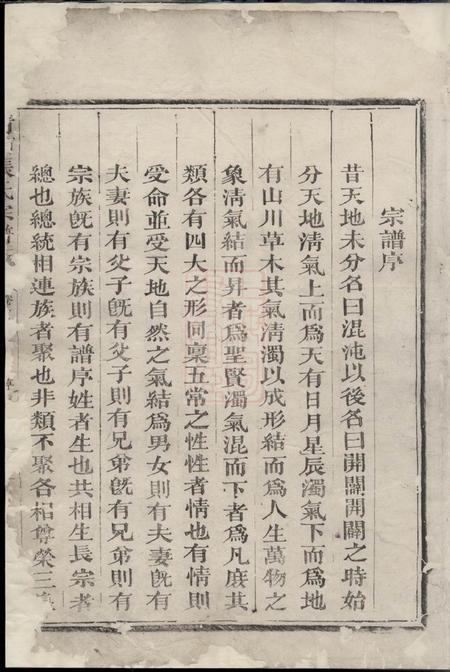 宗譜序
昔天地未分名曰混沌以後名曰開闢開闢之時始
分天地清氣上而為天有日月星辰濁氣下而為地
有山川草木其氣清濁以成形結而為人生萬物之
象清氣結而昇者為聖賢濁氣混而下者為凡庶其
類各有四大之形同稟五常之性性者情也有情則
受命並受天地自然之氣結為男女則有夫妻旣有
夫妻則有父子旣有父子則有兄弟旣有兄弟則有
宗族旣有宗族則有譜序姓者生也共相生長宗者
總也總統相連族者聚也非類不聚各相尊榮三
張氏宗譜